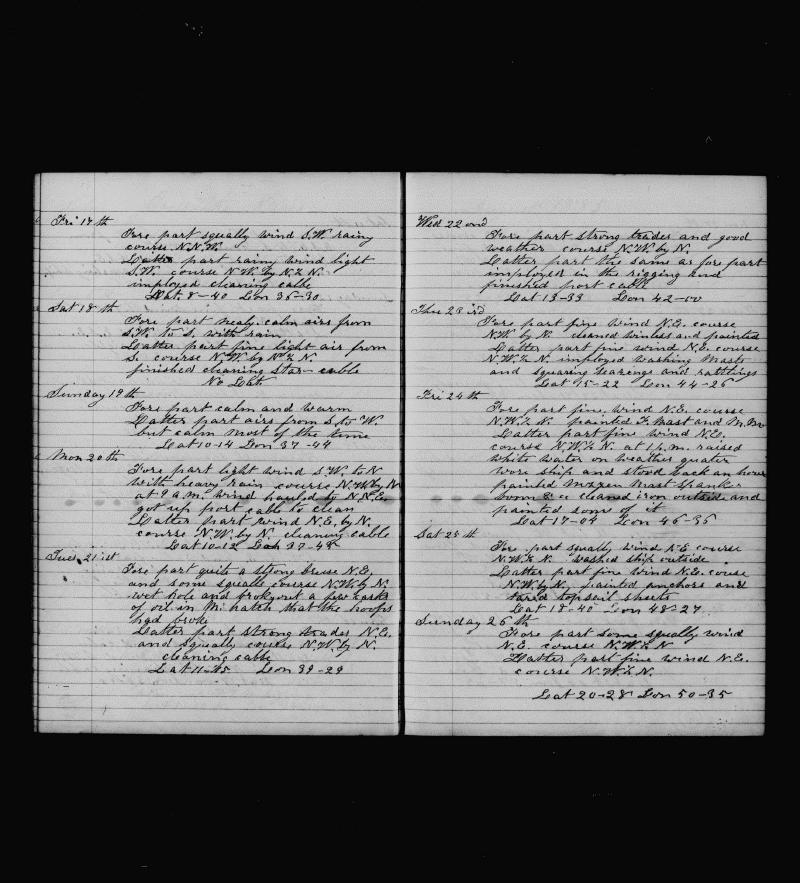 Fri 17 th
Fore part squally wind S.W. rainy
course N.N.W.
Latter part rainy wind light
S.W. course N.W. by N. ½ N.
imployed cleaning cable
Lat. 8-40 Lon 36-30
Sat 18 th
Fore part nealy calm airs from
S.W. to S. with rain
Latter part fine light air from
S. course N.W. by N. ½ N.
finished cleaning star- cable
No Lat
Sunday 19 th
Fore part calm and warm
Latter part airs from S. to W.
but calm most of the time
Lat 10-14 Lon 37-44
Mon 20 th
Fore part light wind S.W. to N
with heavy rain course N.W. by N
at 9 a.m. wind hauled to N.N.E.
got up port cable to clean
Latter part wind N.E. by N.
course N.W. by N. cleaning cable
Lat 10-12 Lon 37-48
Tues. 21 st
Fore part quite a strong breese N.E.
and some squalls course N.W. by N.
wet hole and brok out a few casks
of oil in M. hatch that the hoops
had broke
Latter part strong trades N.E.
and squally course N.W. by N.
cleaning cable
Lat 11-45 Lon 39-29
Wed 22 ond
Fore part strong trades and good
weather course N.W. by N.
Latter part the same as fore part
imployed in the rigging and
finished port cable
Lat 13-33 Lon 42-00
Thu 23 ird
Fore part fine wind N.E. course
N.W. by N. cleaned winless and painted
Latter part fine wind N.E. course
N.W. ½ N. imployed washing Masts
and squaring hearengs and ratthings
Lat 15-22 Lon 44-26
Fri 24 th
Fore part fine wind N.E. course
N.W. ½ N. painted F. Mast and M.M
Latter part fine wind N.E.
course N.W. ½ N. at 1 p.m. raised
white water on weather quater
wore ship and stood back an hour
painted Mizgen Mast Spanker
boom &cc cleaned iron outside and
painted some of it
Lat 17-04 Lon 46-35
Sat 25 th
Fore part squally wind N.E. course
N.W. ½ N. washed ship outside
Latter part fine wind N.E. couse
N.W. by N. painted anchors and
tared topsail sheets
Lat 18-40 Lon 48-27
Sunday 26 th
Fore part some squally wind
N.E. course N.W. ½ N
Latter part fine wind N.E.
course N.W. ½ N.
Lat 20-28 Lon 50-35